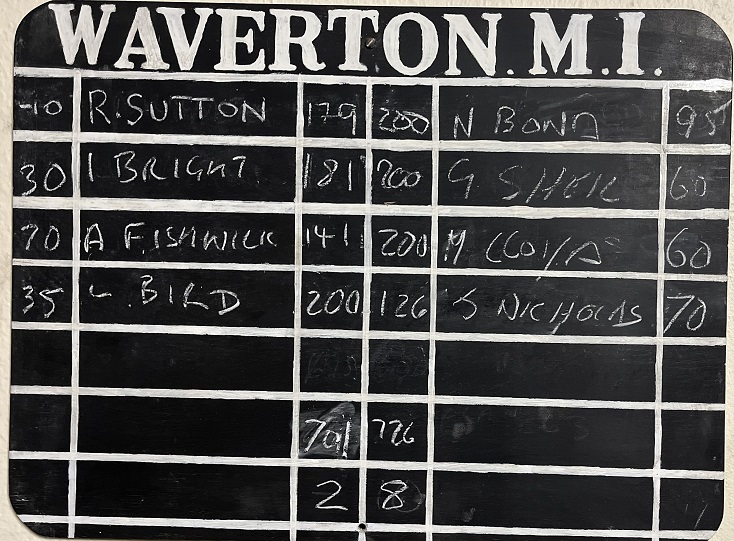 WAVERTON. M.I.
-10 R. SUTTON 179 200 N BOND 95
30 I BRIGHT 181 200 G SHEIL 60
70 A FISHWICK 141 200 M 60
35 L. BIRD 200 126 S NICHOLAS 70
701 726
2 8